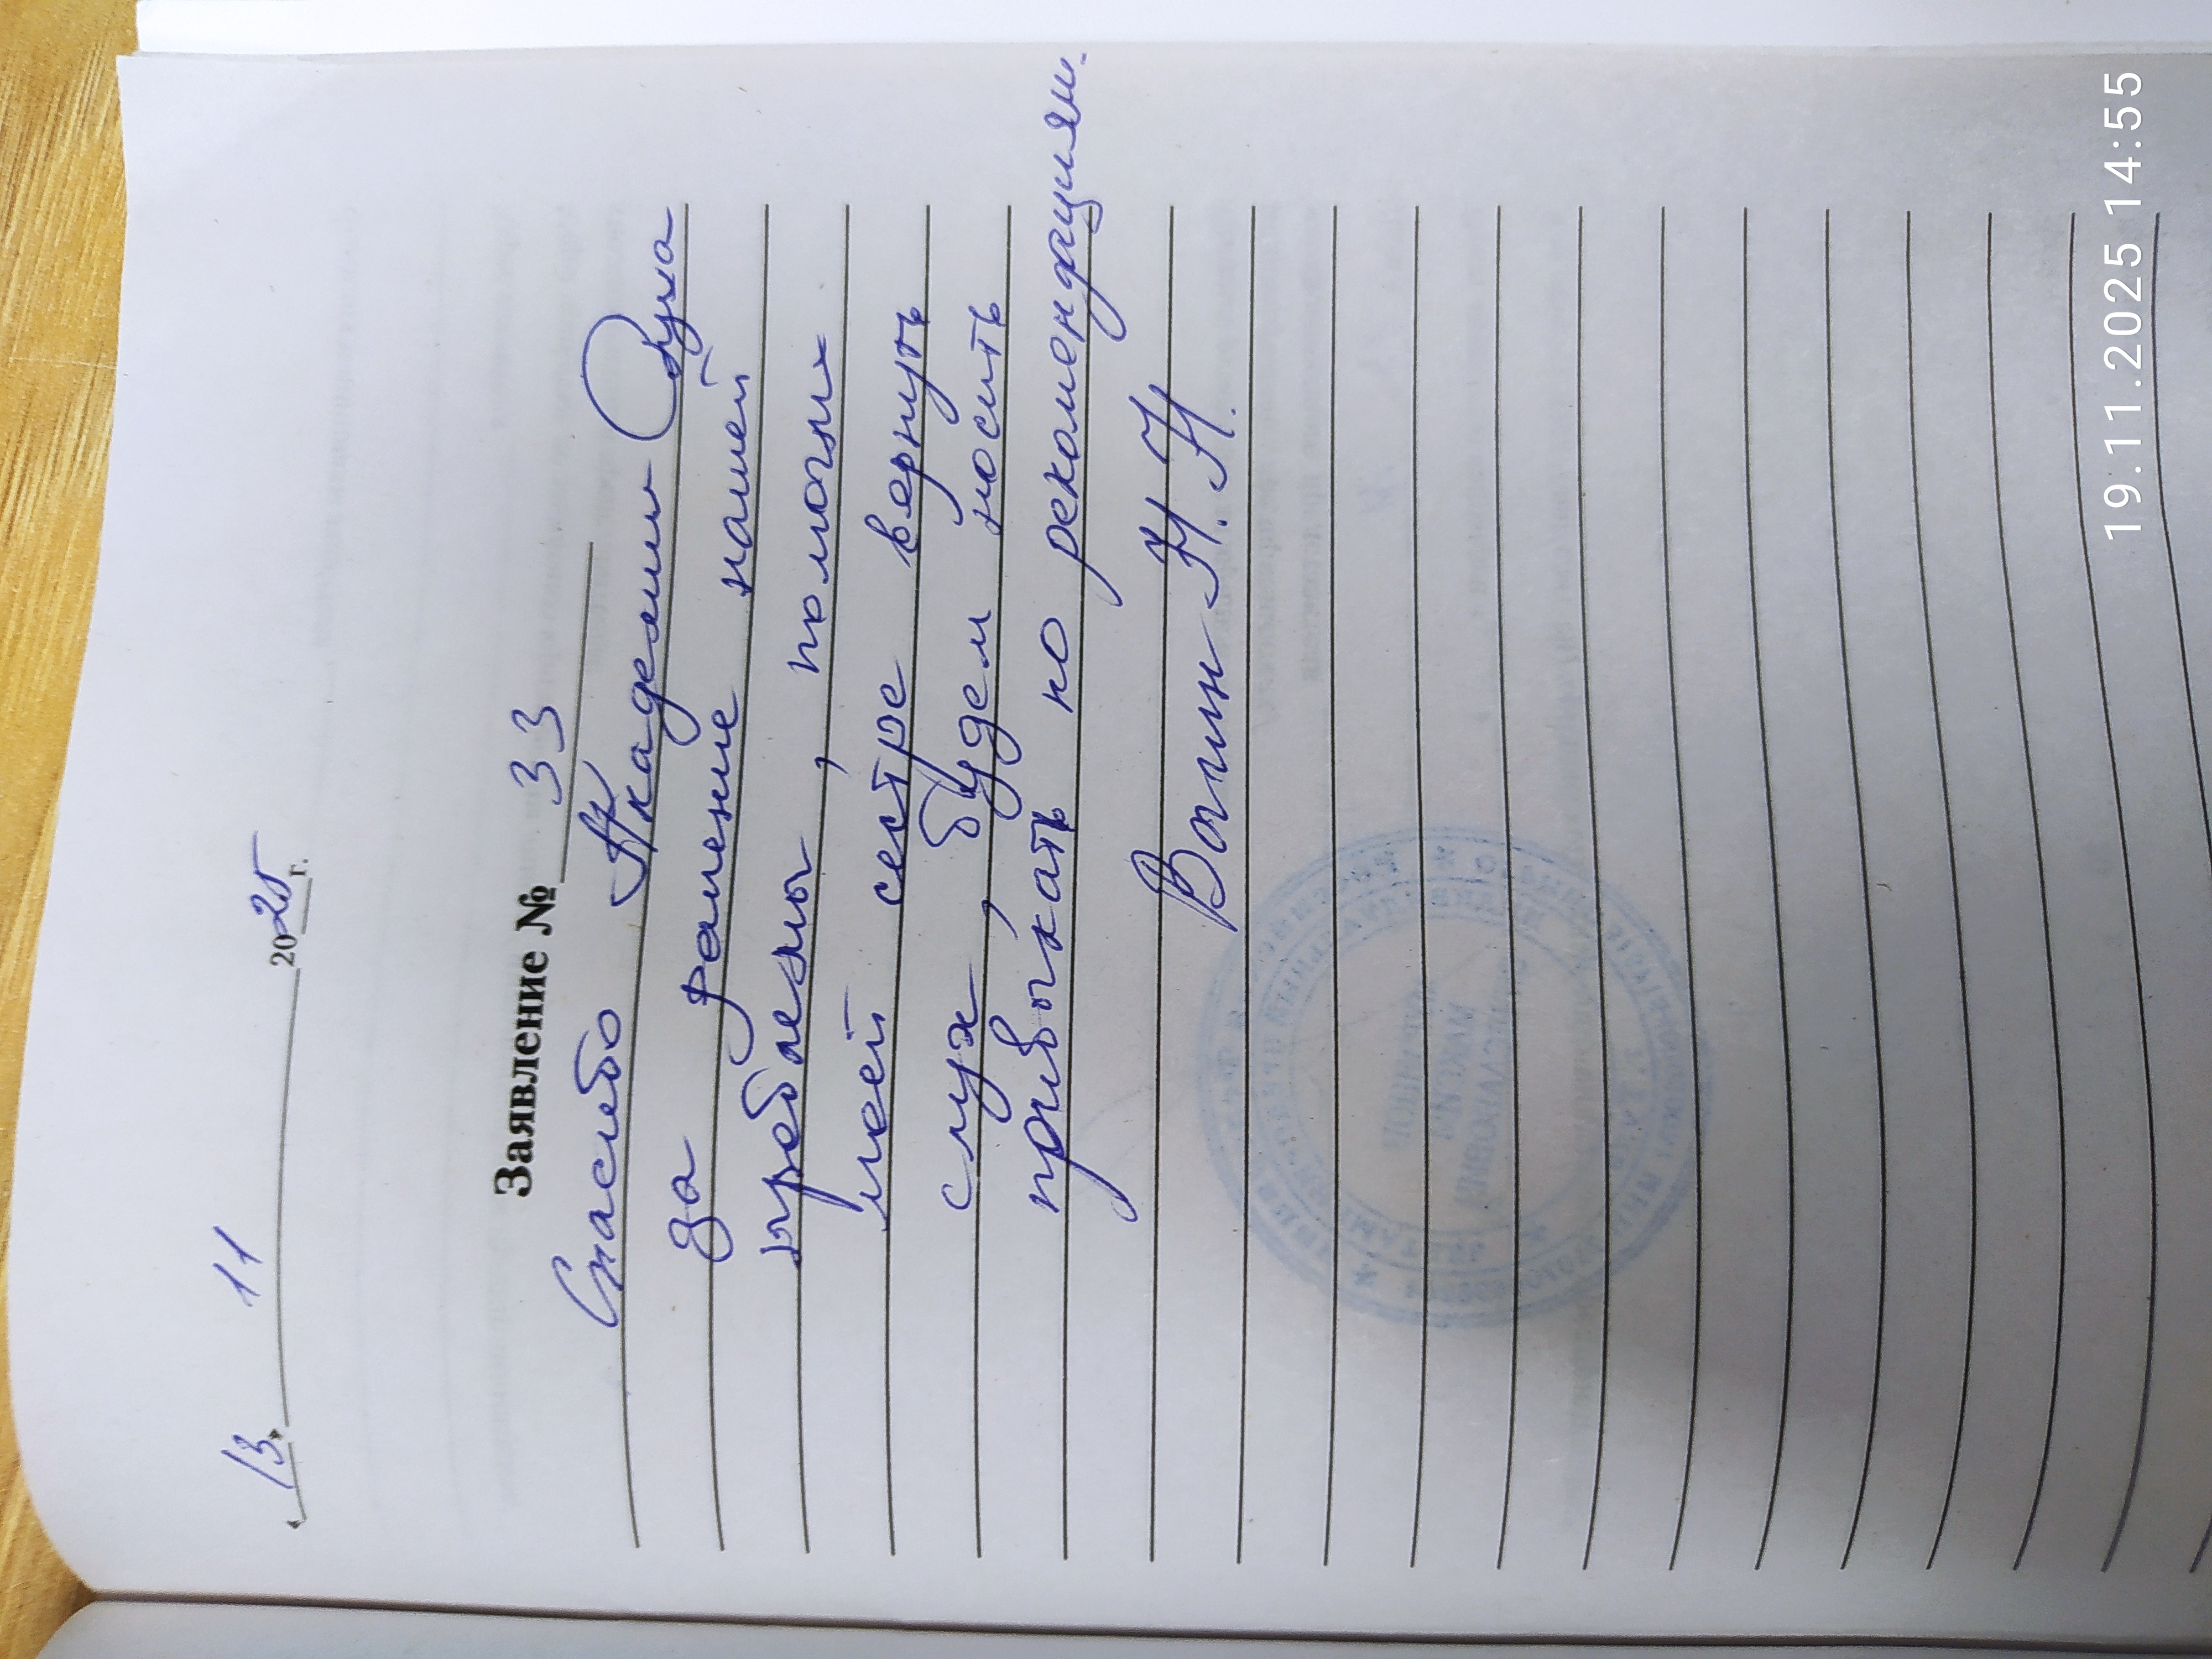 «13» 11 2025 г.
Заявление № 33
Спасибо Академии Слуха
за решение нашей
проблемы, помогли
моей сестре вернуть
слух, будем носить
привыкать по рекомендациям.
Вагин Н.Н.
19.11.2025 14:55